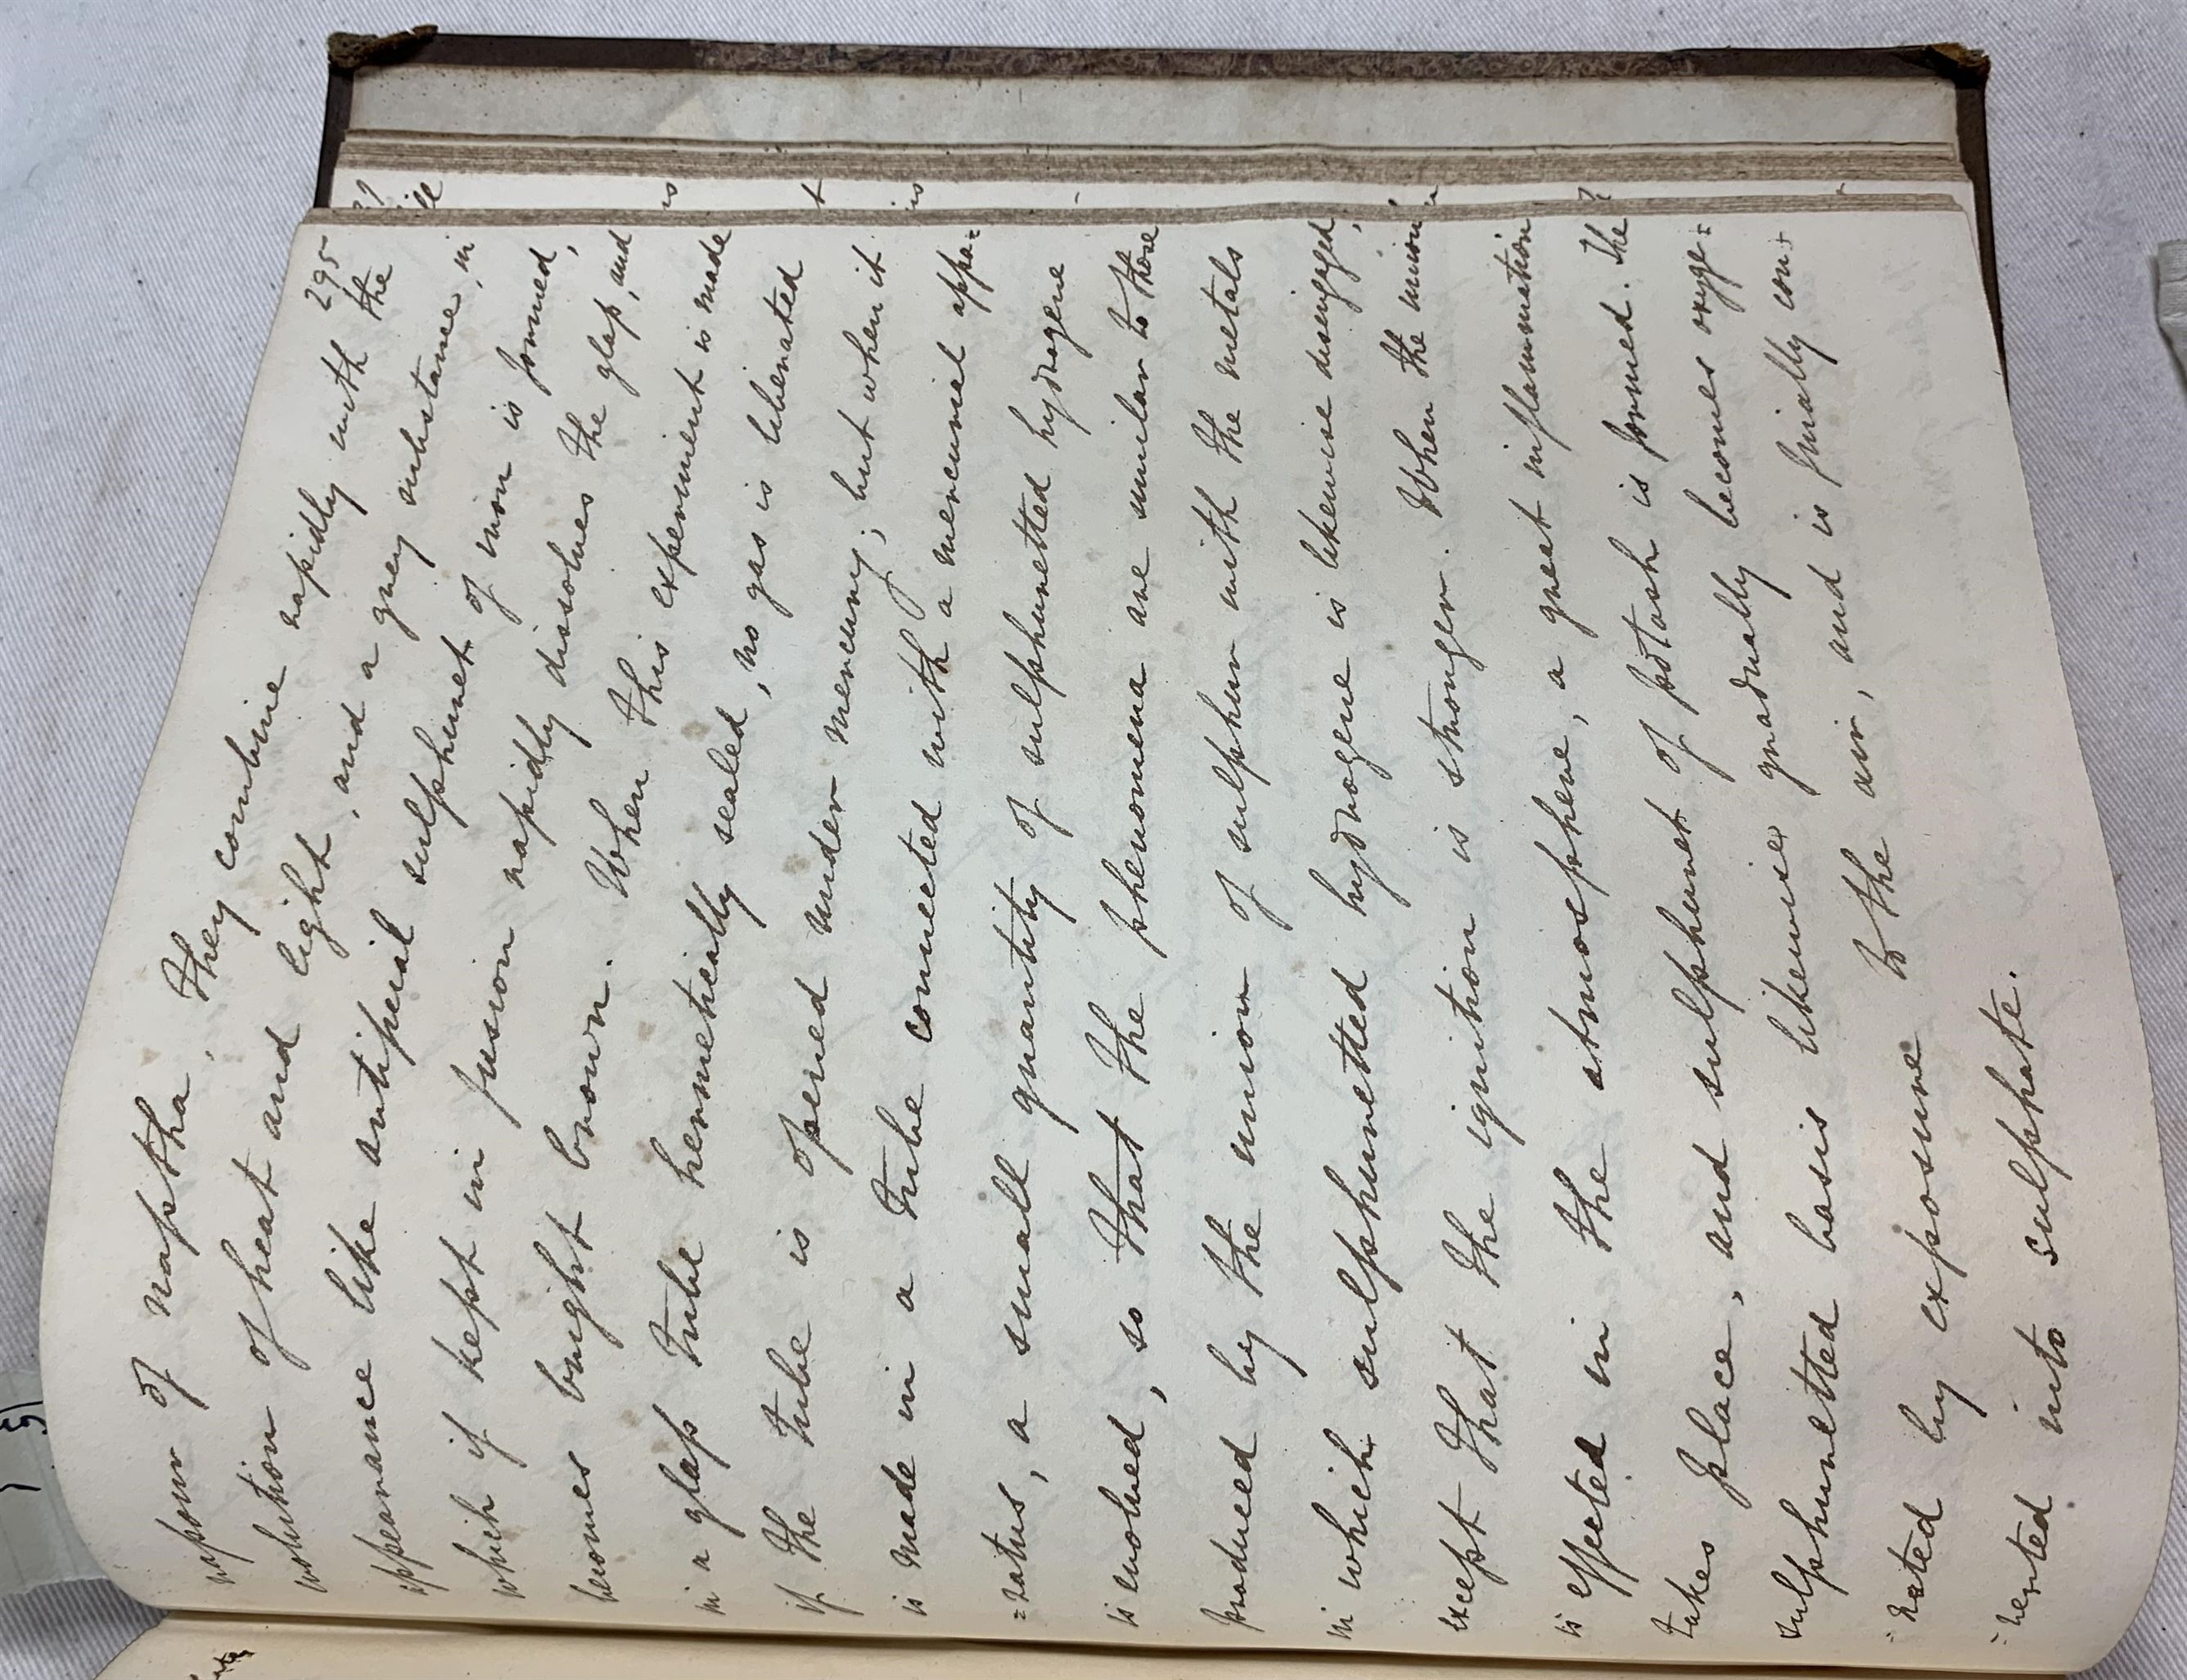 295
vapour of naptha. They combine rapidly with the
evolution of heat and light, and a grey substance, in
appearance like artificial sulphuret of iron is formed,
which if kept in fusion rapidly dissolves the glass, and
becomes bright brown. When this experiment is made
in a glass tube hermetically sealed, no gas is liberated
if the tube is opened under mercury; but when it
is made in a tube connected with a mercurial appa=
=ratus, a small quantity of sulphuretted hydrogene
is evolved, so that the phenomena are similar to those
produced by the union of sulphur with the metals
in which sulphuretted hydrogene is likewise disengaged,
except that the ignition is stronger. When the union
is effected in the atmosphere, a great inflammation
takes place, and sulphuret of potash is formed. The
sulphuretted basis likewise gradually becomes oxyge=
=nated by exposure to the air, and is finally con=
=verted into sulphate.